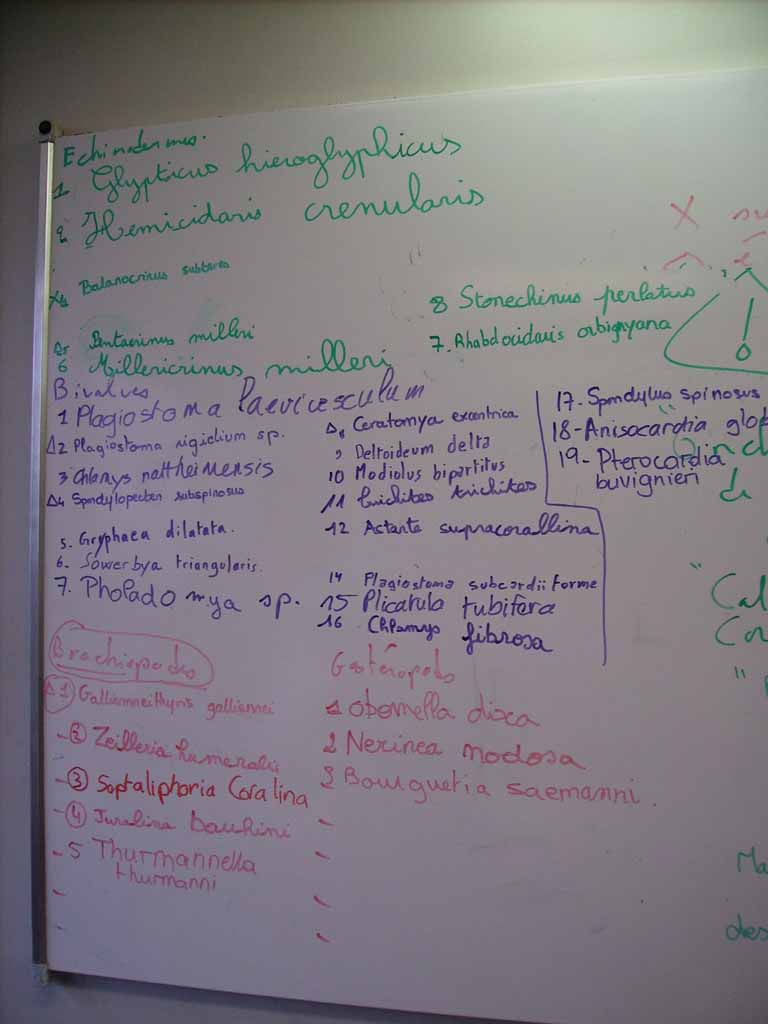 Echinodermes.
1 Glypticus hieroglyphicus
2 Hemicidaris crenularis
Balanocrinus subteres
8 Stomechinus perlatus
7. Rhabdocidaris orbignyana
Δ5 Pentacrinus milleri
6 Millericrinus milleri
Bivalves
1 Plagiostoma laeviusculum
Δ2 Plagiostoma rigidium sp.
3 Chlamys nattheimensis
Δ4 Spondylopecten subspinosus
5. Gryphaea dilatata.
6. Sowerbya triangularis.
7. Pholadomya sp.
Δ8 Ceratomya excentrica
9 Deltoideum delta
10 Modiolus bipartitus
11 Trichites trichites
12 Astarte supracorallina
14 Plagiostoma subcardiiforme
15 Plicatula tubifera
16 Chlamys fibrosa
17. Spondylus spinosus
18-Anisocardia glob
19- Pterocardia
buvignieri
Brachiopodes
Δ1 Galliennithyris galliennei
- 2 Zeilleria humeralis
- 3 Septaliphoria Coralina
- 4 Juralina bauhini
- 5 Thurmannella
thurmanni
Gastéropodes
1 obornella disca
2 Nerinea nodosa
3 Bourguetia saemanni.
X
"Cal
Co
"
Ma
des